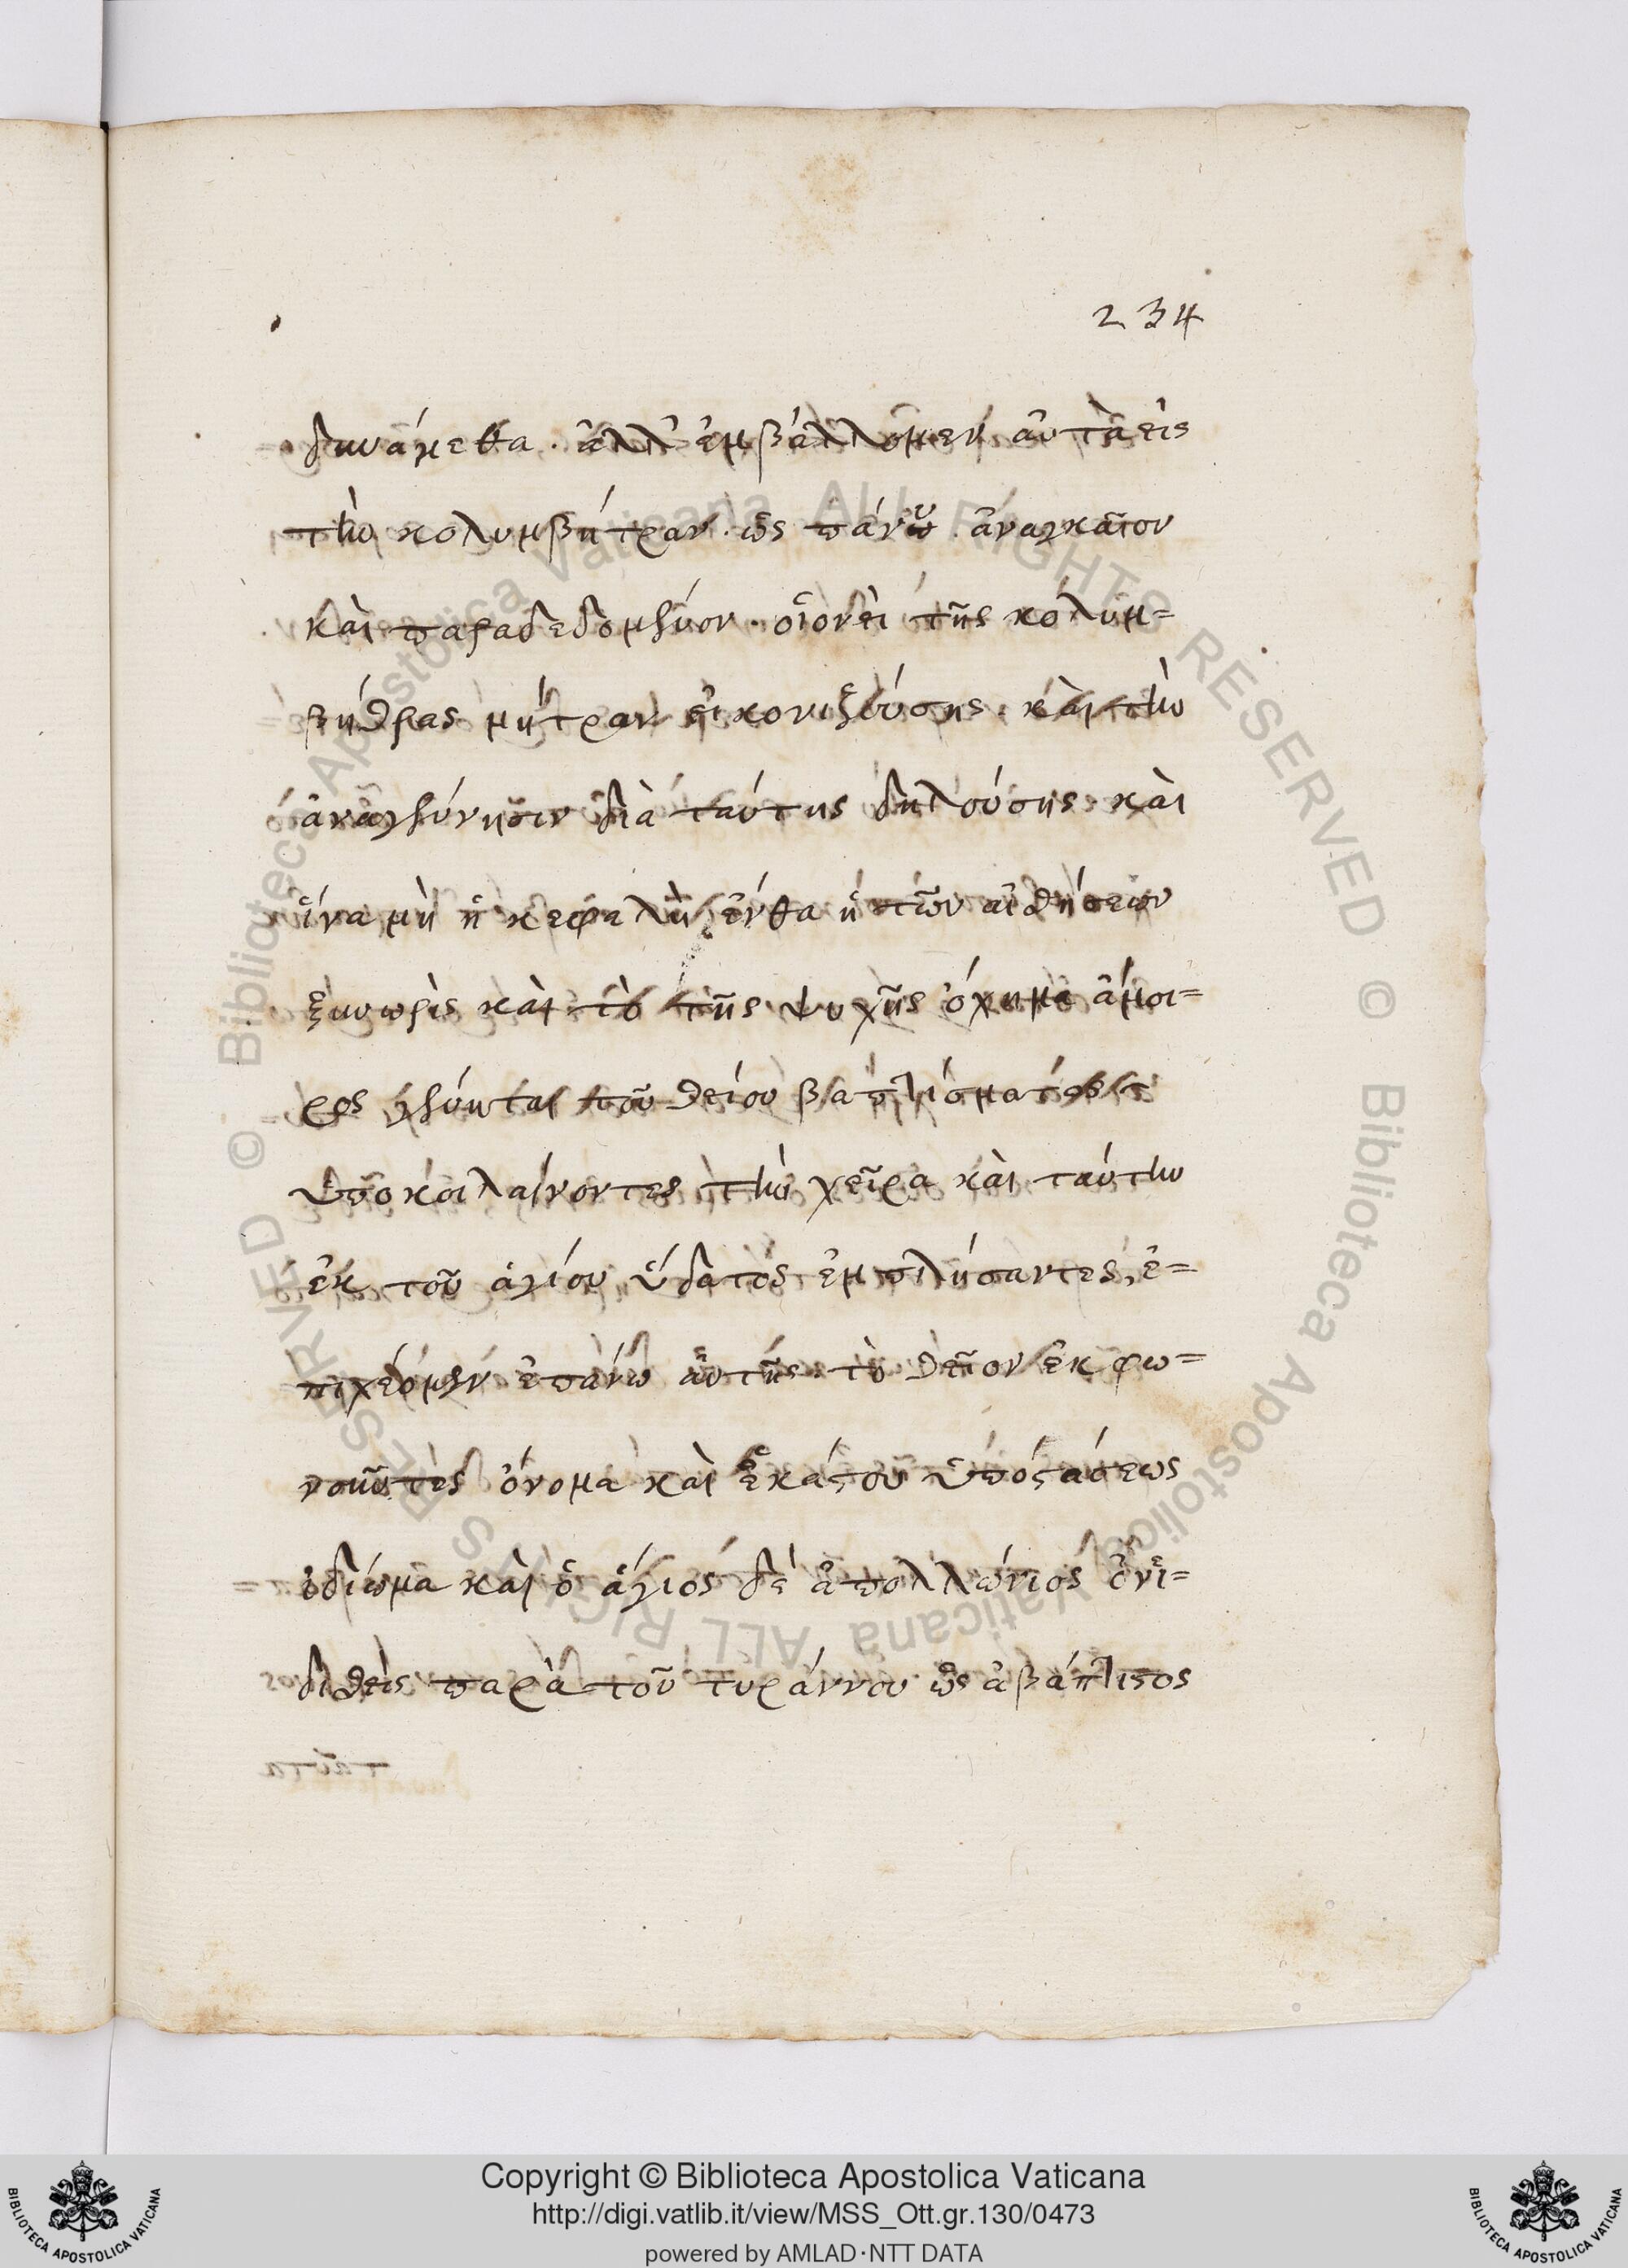 234
δυνάμεθα. ἀλλ' ἐμβάλλομεν αὐτὰ εἰς
τὴν κολυμβήτραν. ὡς πάνυ ἀναγκαῖον
καὶ παραδεδομένον. οἱονεὶ τῆς κολυμ=
βήθρας μήτραν εἰκονιζούσης. καὶ τὴν
ἀναγέννησιν διὰ ταύτης δηλούσης. καὶ
ἵνα μὴ ἡ κεφαλὴ ἔνθα ἡ τῶν αἰσθήσεων
ξυνωρὶς καὶ τὸ τῆς ψυχῆς ὄχημα ἄμοι=
ρος γένηται τοῦ θείου βαπτίσματος
ὑποκοιλαίνοντες τὴν χεῖρα καὶ ταύτην
ἐκ τοῦ ἁγίου ὕδατος ἐμπλήσαντες, ἐ=
πιχέομεν ἐπάνω αὐτῆς. τὸ θεῖον ἐκφω=
νοῦντες ὄνομα καὶ ἑκάστου ὑποστάσεως
ἰδίωμα καὶ ὁ ἅγιος δὲ ἀπολλώνιος ὀνι=
διθεὶς παρὰ τοῦ τυράννου ὡς ἀβάπτιστος
Copyright © Biblioteca Apostolica Vaticana
http://digi.vatlib.it/view/MSS_Ott.gr.130/0473
powered by AMLAD·NTT DATA
BIBLIOTECA APOSTOLICA VATICANA
BIBLIOTECA APOSTOLICA VATICANA
© Biblioteca Apostolica Vaticana ALL RIGHTS RESERVED
© Biblioteca Apostolica Vaticana ALL RIGHTS RESERVED